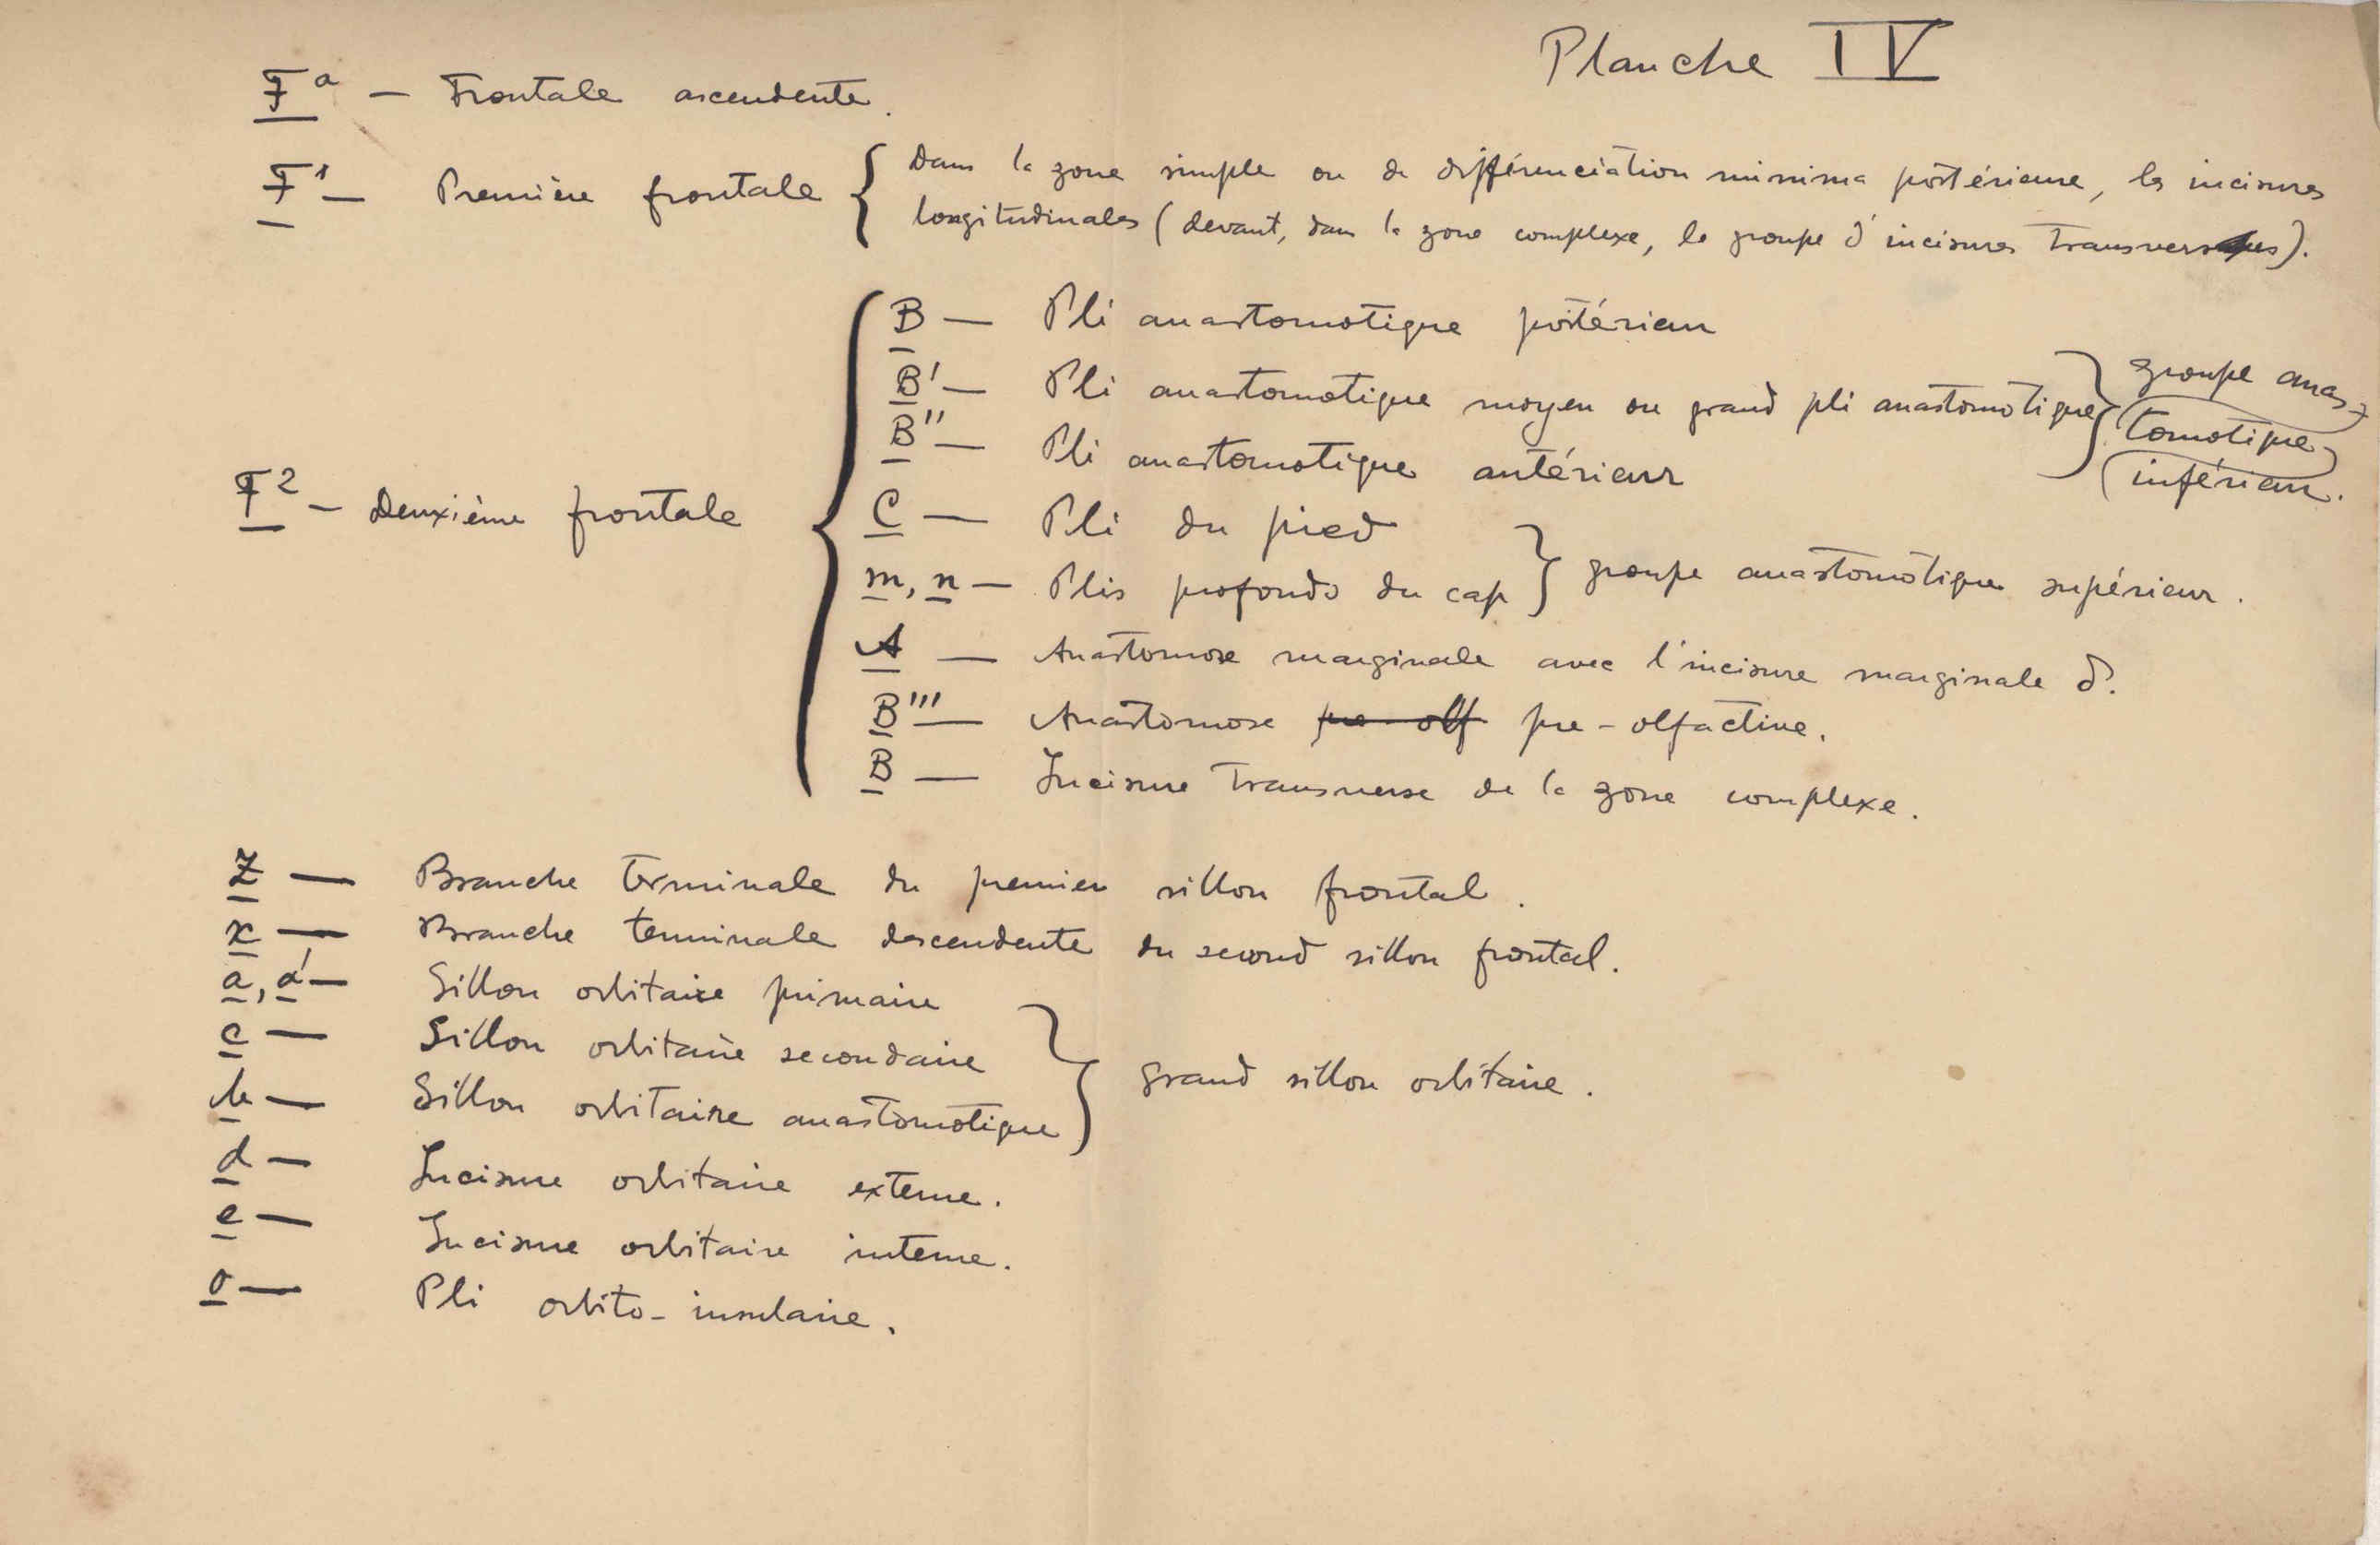 Planche IV
Fᵃ — Frontale ascendente.
F¹ — Première frontale { Dans la zone simple ou de différenciation minima postérieure, les incisures
longitudinales (devant, dans la zone complexe, le groupe d'incisures transverses).
F² — Deuxième frontale {
B — Pli anastomotique postérieur
B' — Pli anastomotique moyen ou grand pli anastomotique
B'' — Pli anastomotique antérieur
} groupe anas-
tomotique
inférieur.
C — Pli du pied
m, n — Plis profonds du cap } groupe anastomotique supérieur.
A — Anastomose marginale avec l'incisure marginale δ.
B''' — Anastomose pre-olf pre-olfactive.
B — Incisure transverse de la zone complexe.
Z — Branche terminale du premier sillon frontal.
x — Branche terminale descendente du second sillon frontal.
a, a' — Sillon orbitaire primaire
c — Sillon orbitaire secondaire
b — Sillon orbitaire anastomotique
} grand sillon orbitaire.
d — Incisure orbitaire externe.
e — Incisure orbitaire interne.
o — Pli orbito-insulaire.